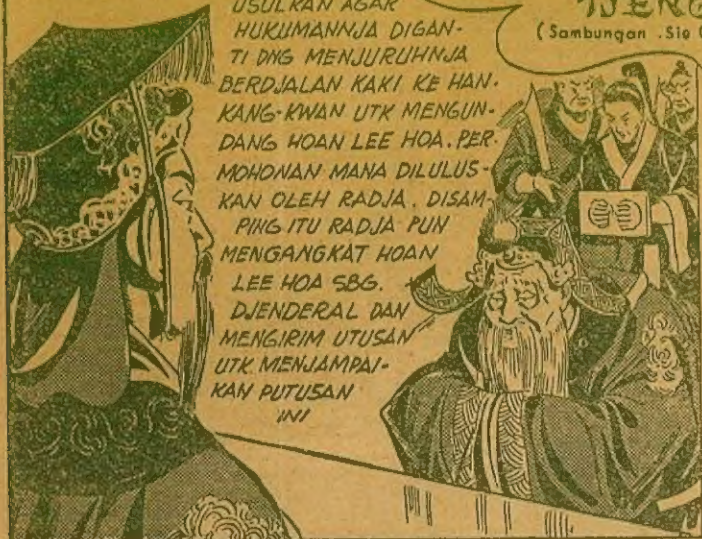 USULKAN AGAR
HUKUMANNJA DIGAN-
TI DNG MENJURUHNJA
BERDJALAN KAKI KE HAN-
KANG-KWAN UTK MENGUN-
DANG HOAN LEE HOA. PER-
MOHONAN MANA DILULUS-
KAN OLEH RADJA. DISAM-
PING ITU RADJA PUN
MENGANGKAT HOAN
LEE HOA SBG.
DJENDERAL DAN
MENGIRIM UTUSAN
UTK MENJAMPAI-
KAN PUTUSAN
INI
TJENG
(Sambungan .Sie